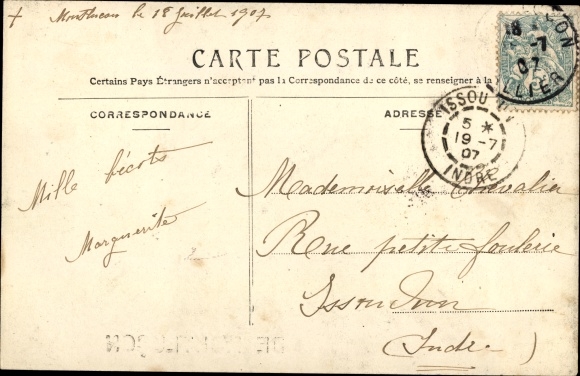 + Montlucon le 18 Juillet 1907
CARTE POSTALE
Certains Pays Étrangers n'acceptent pas la Correspondance de ce côté, se renseigner à la
CORRESPONDANCE
ADRESSE
LON
18
-7
07
ALLIER
ISSOUDUN
5 *
19 -7
07
INDRE
Mille bécots
Marguerite
Mademoiselle Chevalier
Rue petite foulerie
Issoudun
(Indre)
DE MONTLUÇON